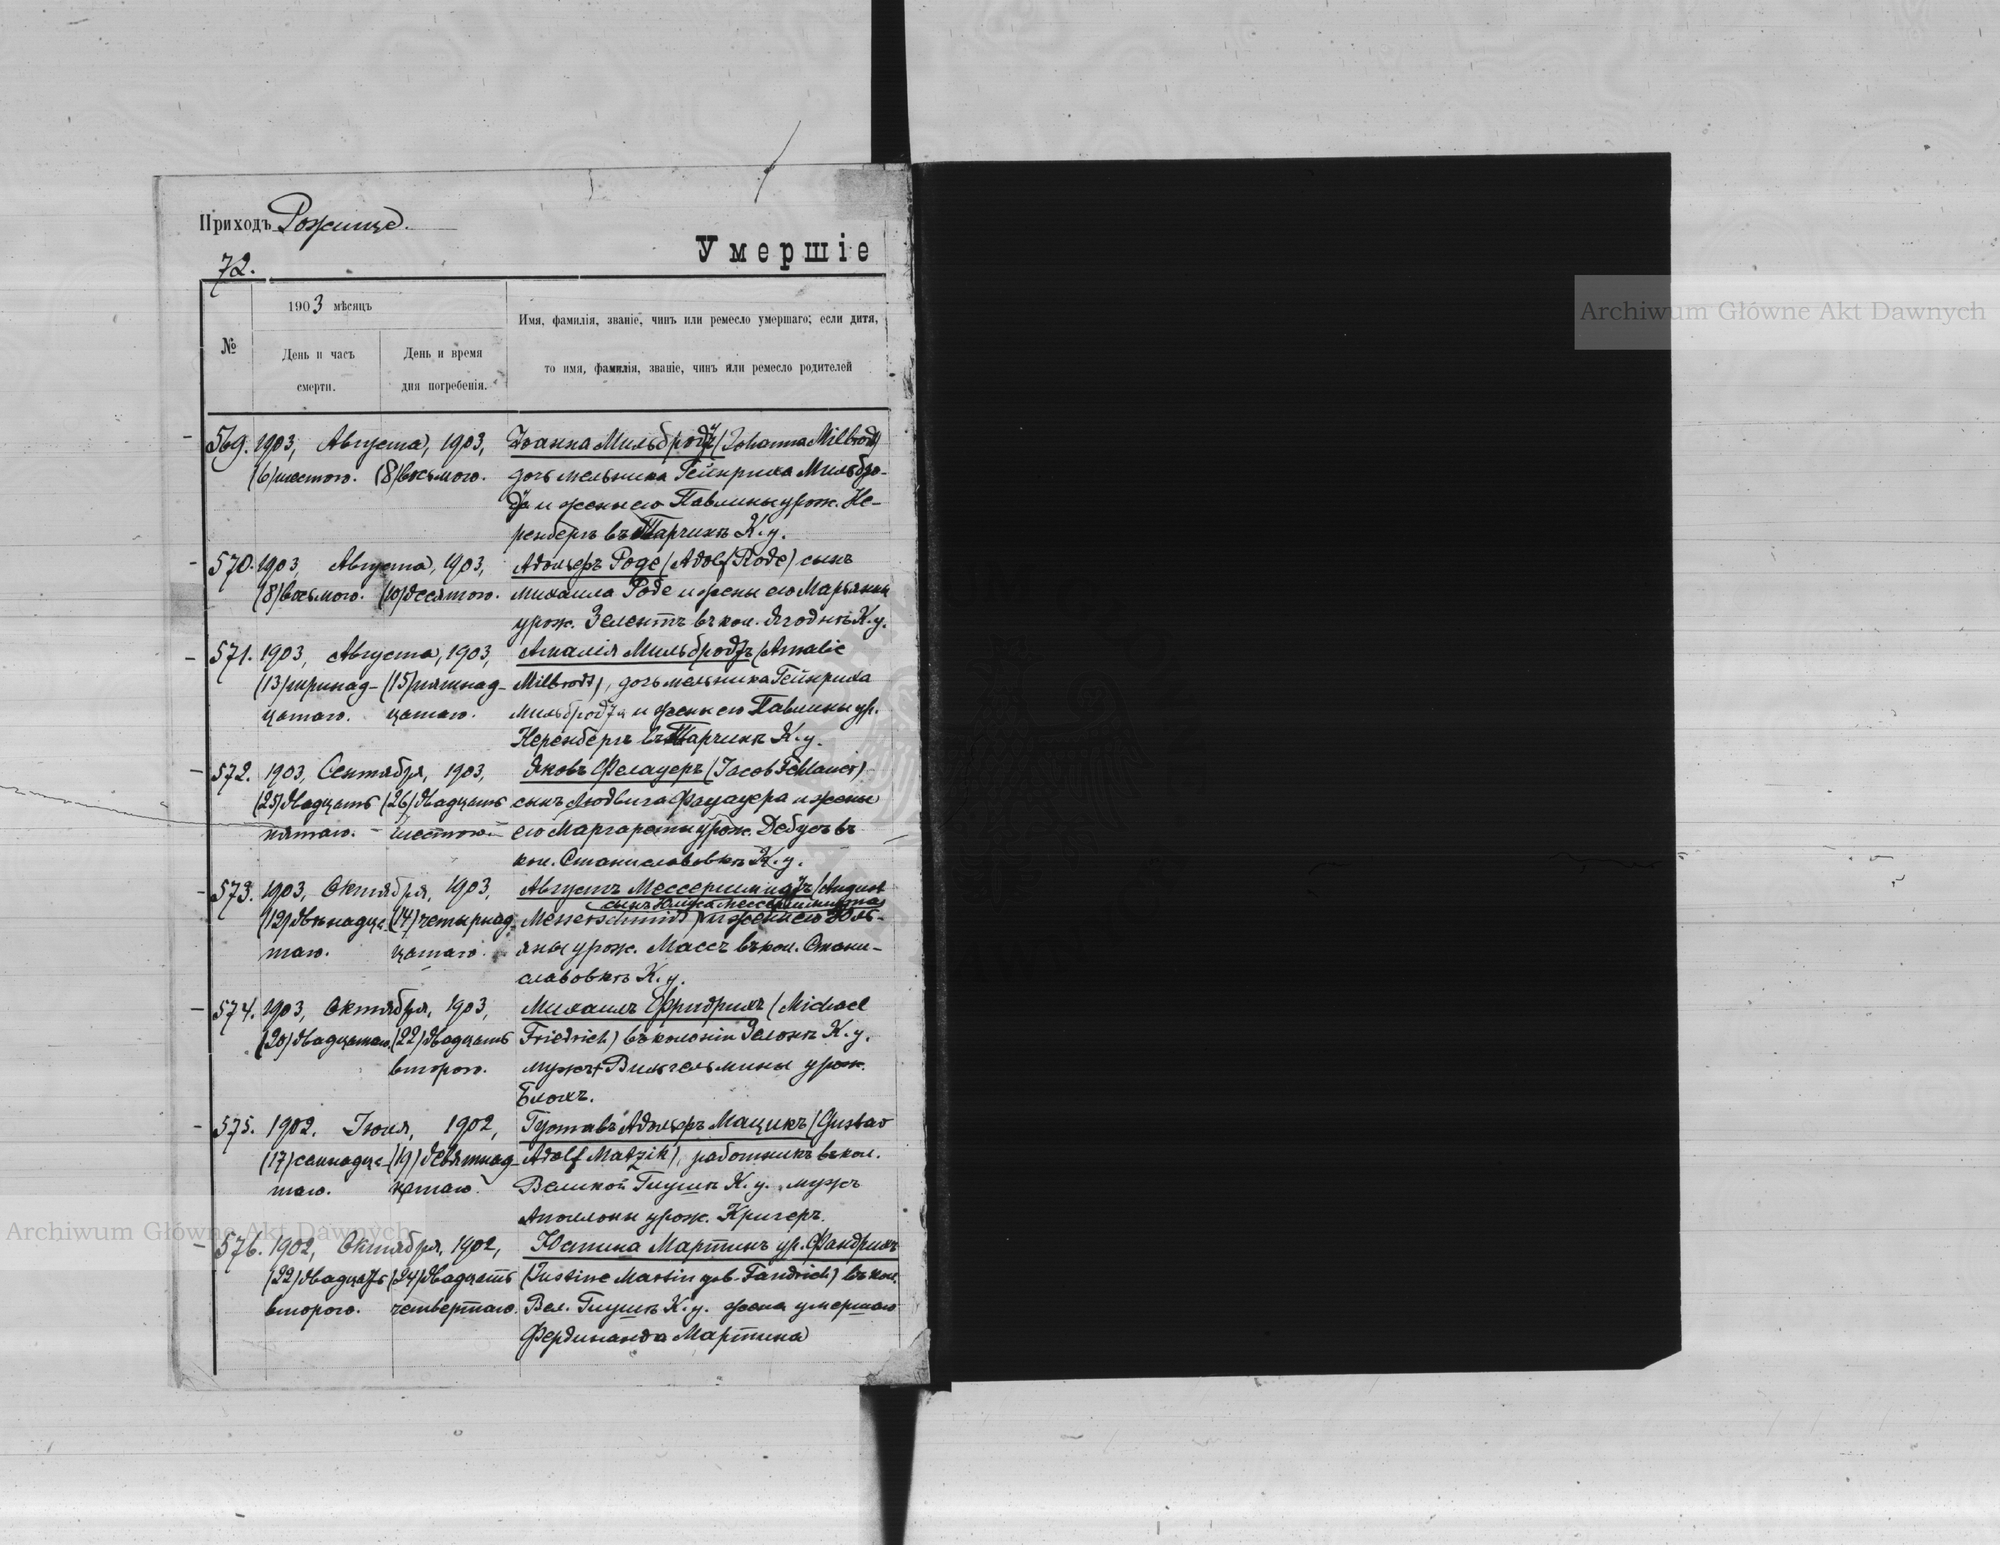 Приходъ Рожище.
72.
Умершіе
№
1903 мѣсяцъ
День и часъ смерти.
День и время дня погребенія.
Имя, фамилія, званіе, чинъ или ремесло умершаго; если дитя,
то имя, фамилія, званіе, чинъ или ремесло родителей
569. 1903, Августа, 1903, Іоанна Мильбродтъ (Johanna Milbrodt)
(6) шестого. (8) восьмого. дочь мельника Гейнриха Мильбро-
дта и жены его Павлины урож. Не-
ренбергъ въ К. у.
570. 1903, Августа, 1903, Адольфъ Роде (Adolf Rode) сынъ
(8) восьмого. (10) десятого. Михаила Роде и жены его Марьяны
урож. Зелентъ въ кол. Ягоднѣ К. у.
571. 1903, Августа, 1903, Амалія Мильбродтъ (Amalie
(13) тринад- (15) пятнад- Milbrodt), дочь мельника Гейнриха
цатаго. цатаго. Мильбродта и жены его Павлины ур.
Неренбергъ въ К. у.
572. 1903, Сентября, 1903, Яковъ Фелауеръ (Jacob Fehlauer)
(25) двадцать (26) двадцать сынъ Людвига и жены
пятаго. шестого. его Маргареты урож. Дебусъ въ
кол. Станиславовкѣ К. у.
573. 1903, Октября, 1903, Августъ Мессершмидтъ (August
сынъ Мессершмидта
(12) двѣнадца- (14) четырнад- Messerschmidt) и жены его Юль-
таго. цатаго. яны урож. Массъ въ кол. Стани-
славовкѣ К. у.
574. 1903, Октября, 1903, Михаилъ Фридрихъ (Michael
(20) двадцатаго. (22) двадцать Friedrich) въ колоніи К. у.
второго. мужъ Вильгельмины урож.
Блохъ.
575. 1902, Іюля, 1902, Густавъ Адольфъ Мацикъ (Gustav
(17) семнадца- (19) девятнад- Adolf Matzik), работникъ въ кол.
таго. цатаго. Великой Глушѣ К. у. мужъ
Аполлоны урож. Кригеръ.
576. 1902, Октября, 1902, Юстина Мартинъ ур. Фандрихъ
(22) двадцать (24) двадцать (Justine Martin geb. Fandrich) въ кол.
второго. четвертаго. Вел. Глушѣ К. у. жена умершаго
Фердинанда Мартина
Archiwum Główne Akt Dawnych
Archiwum Główne Akt Dawnych